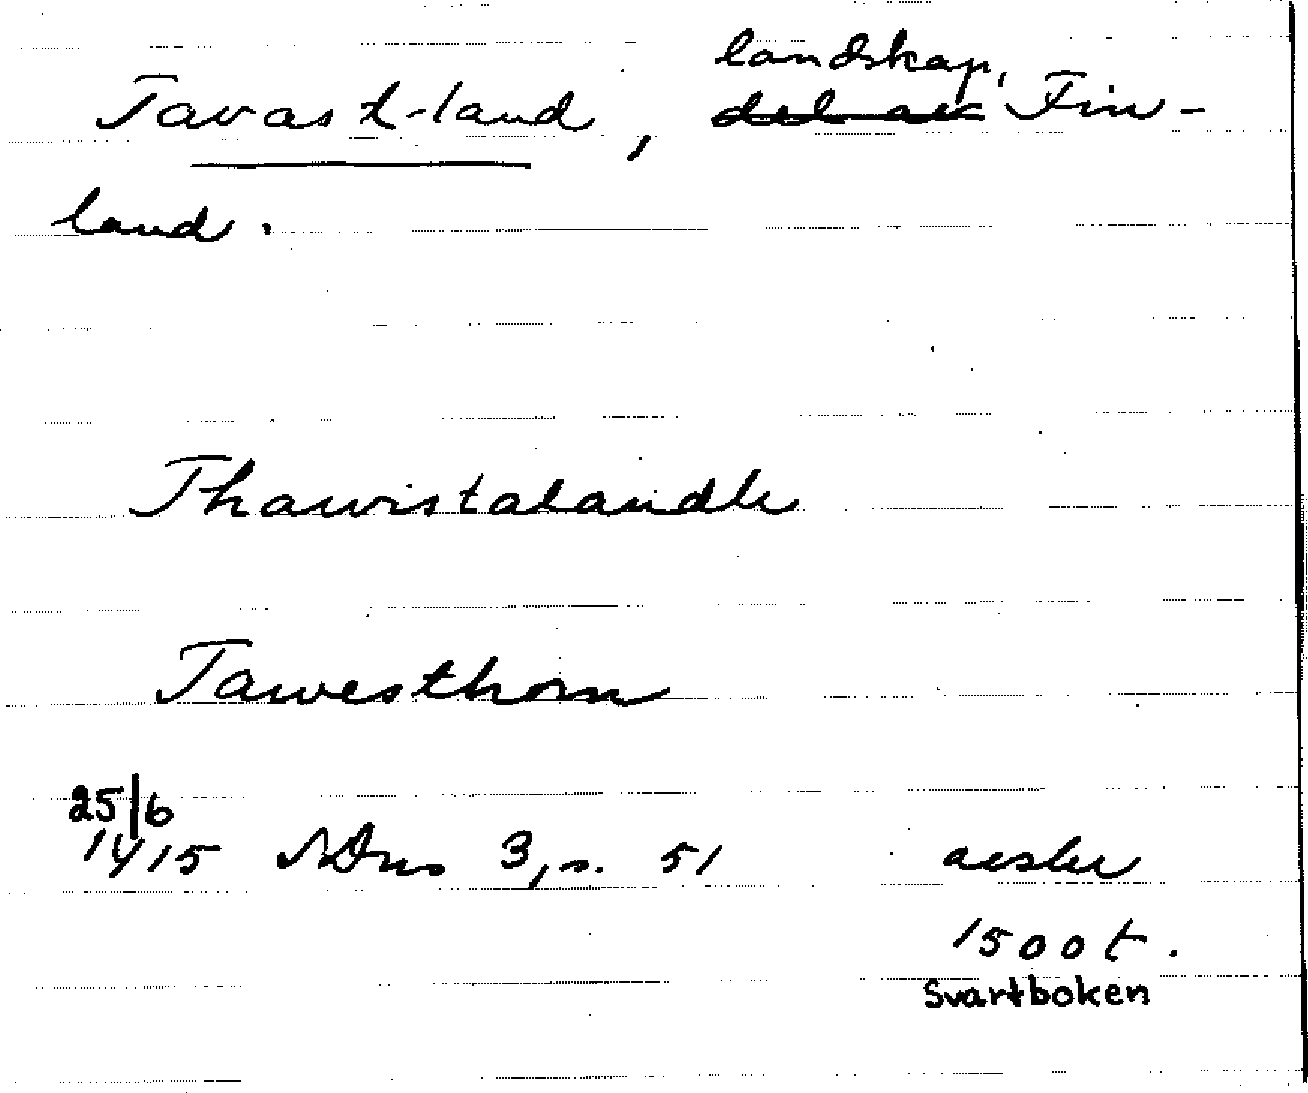 Tavast-land, landskap, Fin-
land.
Thawistalandh
Tawesthom
25/6
1415 SDns 3, s. 51 avskr
1500 t.
Svartboken